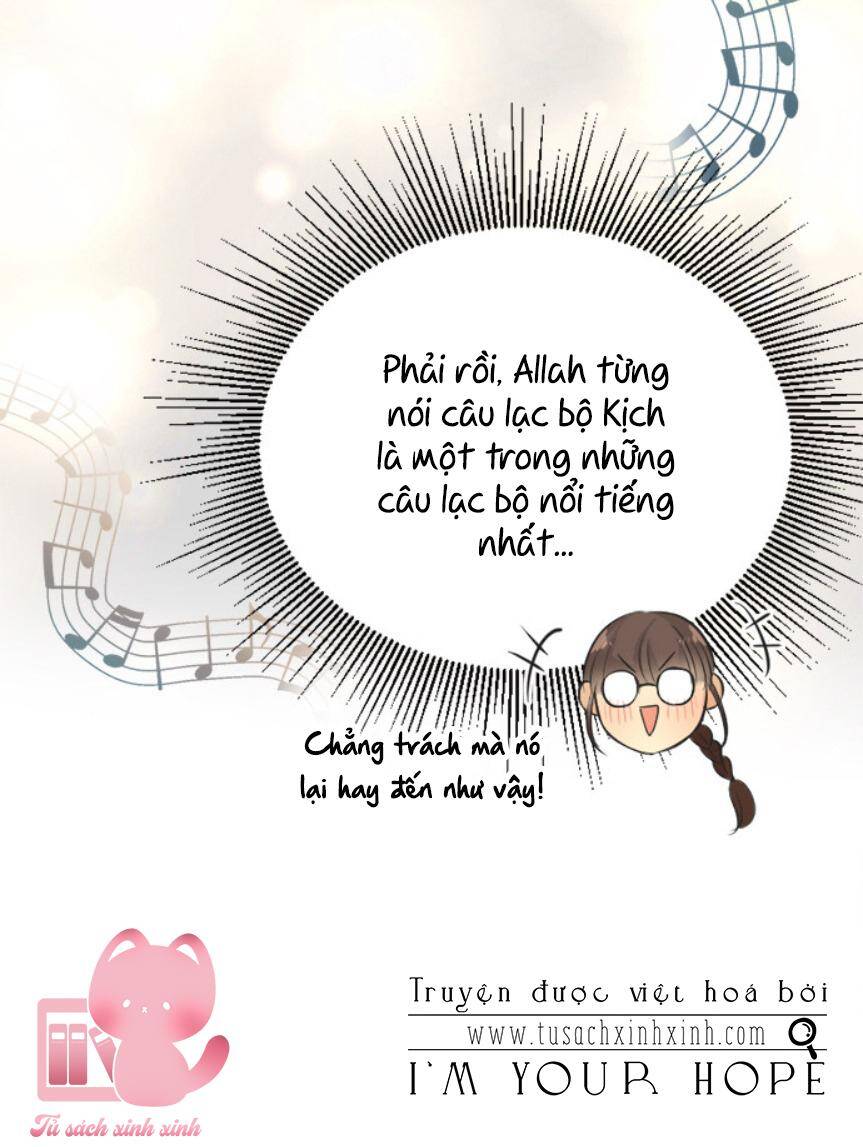 Phải rồi, Allah từng
nói câu lạc bộ Kịch
là một trong những
câu lạc bộ nổi tiếng
nhất...
Chẳng trách mà nó
lại hay đến như vậy!
Truyện được việt hoá bởi
www.tusachxinhxinh.com
I'M YOUR HOPE
Tủ sách xinh xinh